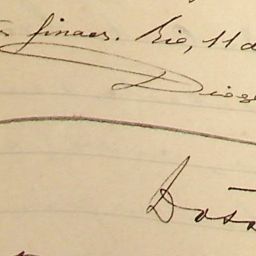 finaes. Rio, 11 d
Diog
Dosa